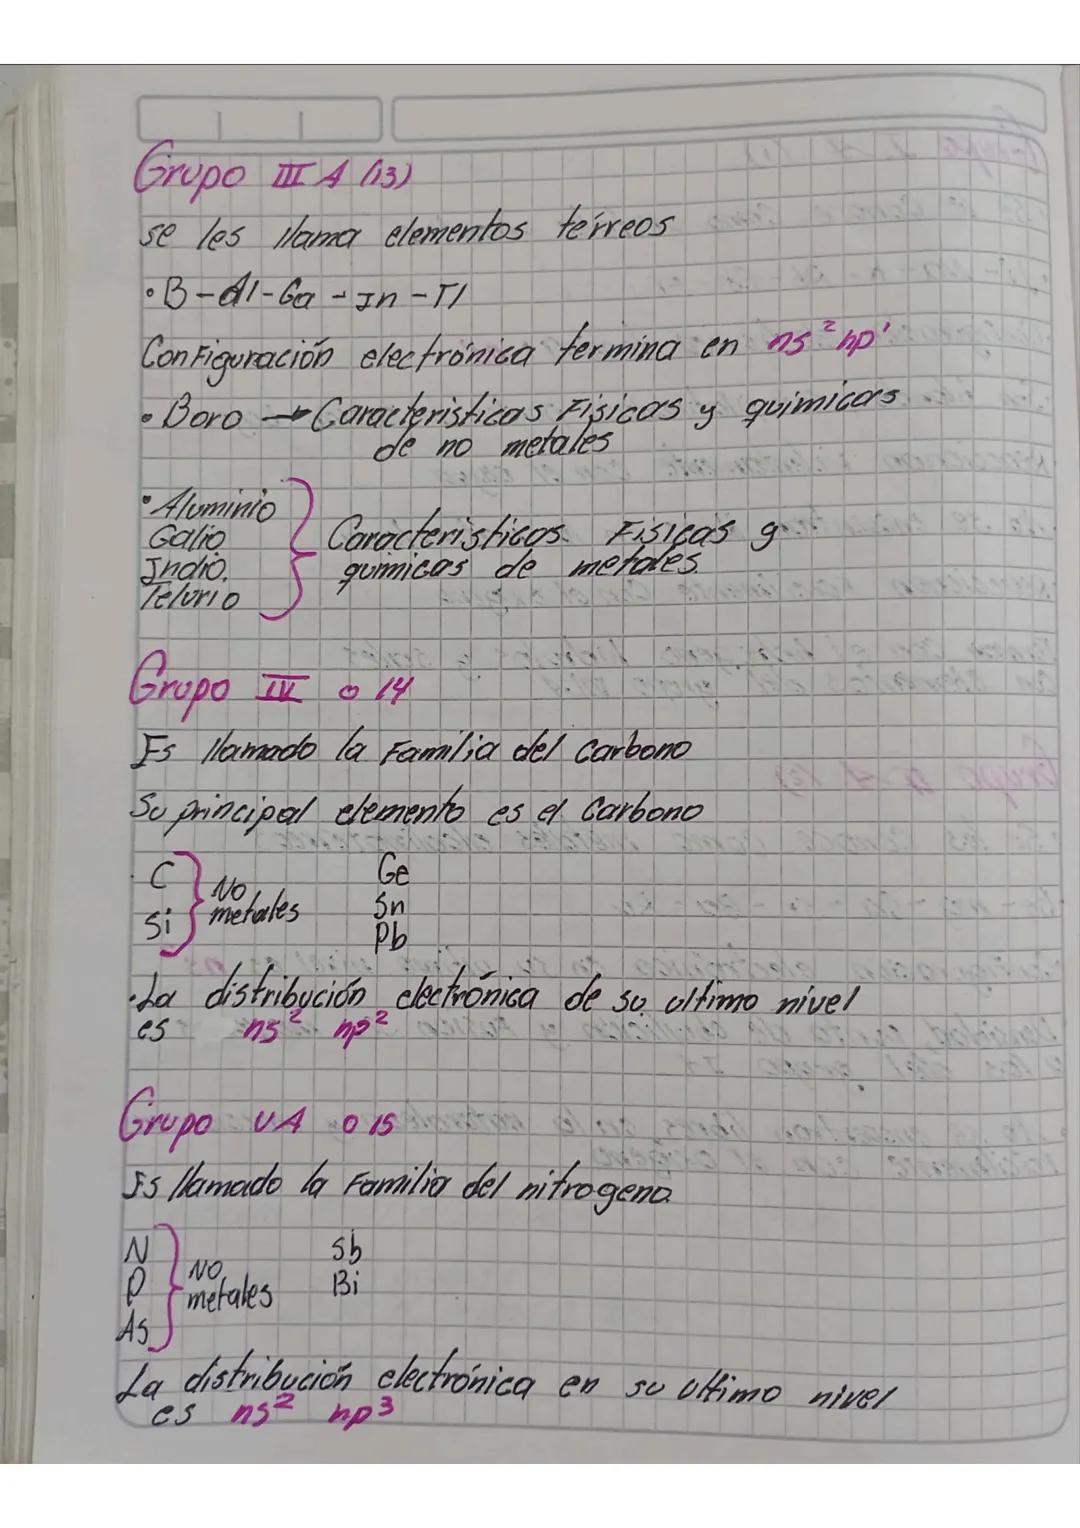 Grupo III A (13)
se les llama elementos térreos
• B - Al - Ga - In - Tl
Configuración electrónica termina en ns² np¹
• Boro → Caracteristicas Fisicas y quimicas
de no metales
• Aluminio
Galio
Indio.
Telurio
Caracteristicas Fisicas y
quimicas de metales.
Grupo IV o 14
Es llamado la Familia del Carbono
Su principal elemento es el Carbono
C
Si
No
metales
Ge
Sn
Pb
• La distribución electrónica de su ultimo nivel
es ns² np²
Grupo VA o 15
Es llamado la Familia del nitrogeno
N
P
As
No
metales
Sb
Bi
La distribución electrónica en su ultimo nivel
es ns² np³